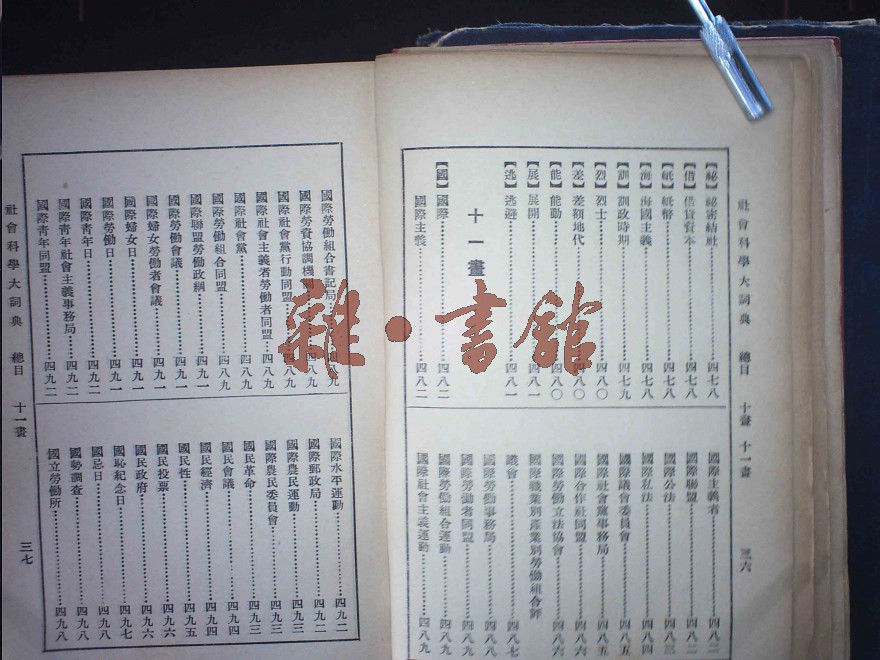 社會科學大詞典 總目 十畫 十一畫
三六
【祕】祕密結社⋯⋯四七八
【借】借貸資本⋯⋯四七八
【紙】紙幣⋯⋯四七八
【海】海國主義⋯⋯四七八
【訓】訓政時期⋯⋯四七九
【烈】烈士⋯⋯四八〇
【差】差額地代⋯⋯四八〇
【能】能動⋯⋯四八〇
【展】展開⋯⋯四八一
【逃】逃避⋯⋯四八一
十一畫
【國】國際⋯⋯四八二
國際主義⋯⋯四八二
國際主義者⋯⋯四八二
國際聯盟⋯⋯四八二
國際公法⋯⋯四八三
國際私法⋯⋯四八四
國際議會委員會⋯⋯四八五
國際社會黨事務局⋯⋯四八五
國際合作社同盟⋯⋯四八六
國際勞働立法協會⋯⋯四八六
國際職業別產業別勞働組合評
議會⋯⋯四八七
國際勞働事務局⋯⋯四八八
國際勞働者同盟⋯⋯四八八
國際勞働組合運動⋯⋯四八九
國際社會主義運動⋯⋯四八九
國際勞働組合書記局⋯⋯四八九
國際勞資協調機關⋯⋯四八九
國際社會黨行動同盟⋯⋯四八九
國際社會主義者勞働者同盟⋯⋯四八九
國際社會黨⋯⋯四八九
國際勞働組合同盟⋯⋯四八九
國際聯盟勞働政綱⋯⋯四九一
國際勞働會議⋯⋯四九一
國際婦女勞働者會議⋯⋯四九一
國際婦女日⋯⋯四九一
國際勞働日⋯⋯四九二
國際青年日⋯⋯四九二
國際青年社會主義事務局⋯⋯四九二
國際青年同盟⋯⋯四九二
國際水平運動⋯⋯四九二
國際郵政局⋯⋯四九二
國際農民運動⋯⋯四九三
國際農民委員會⋯⋯四九三
國民革命⋯⋯四九三
國民會議⋯⋯四九四
國民經濟⋯⋯四九四
國民性⋯⋯四九五
國民投票⋯⋯四九六
國民政府⋯⋯四九六
國恥紀念日⋯⋯四九七
國忌日⋯⋯四九八
國勢調查⋯⋯四九八
國立勞働所⋯⋯四九八
社會科學大詞典 總目 十一畫
三七
雜·書館